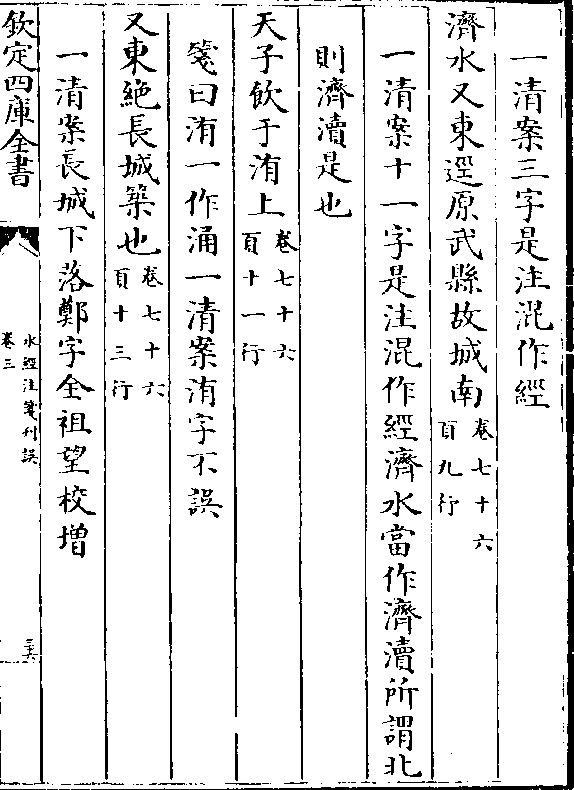 一清案三字是注混作經
濟水又東逕原武縣故城南卷七十六頁九行
一清案十一字是注混作經濟水當作濟瀆所謂北
則濟瀆是也
天子飲于洧上卷七十六頁十一行
箋曰洧一作涌一清案洧字不誤
又東絶長城築也卷七十六頁十三行
一清案長城下落鄭字全祖望校增
欽定四庫全書
水經注箋刊誤
卷三